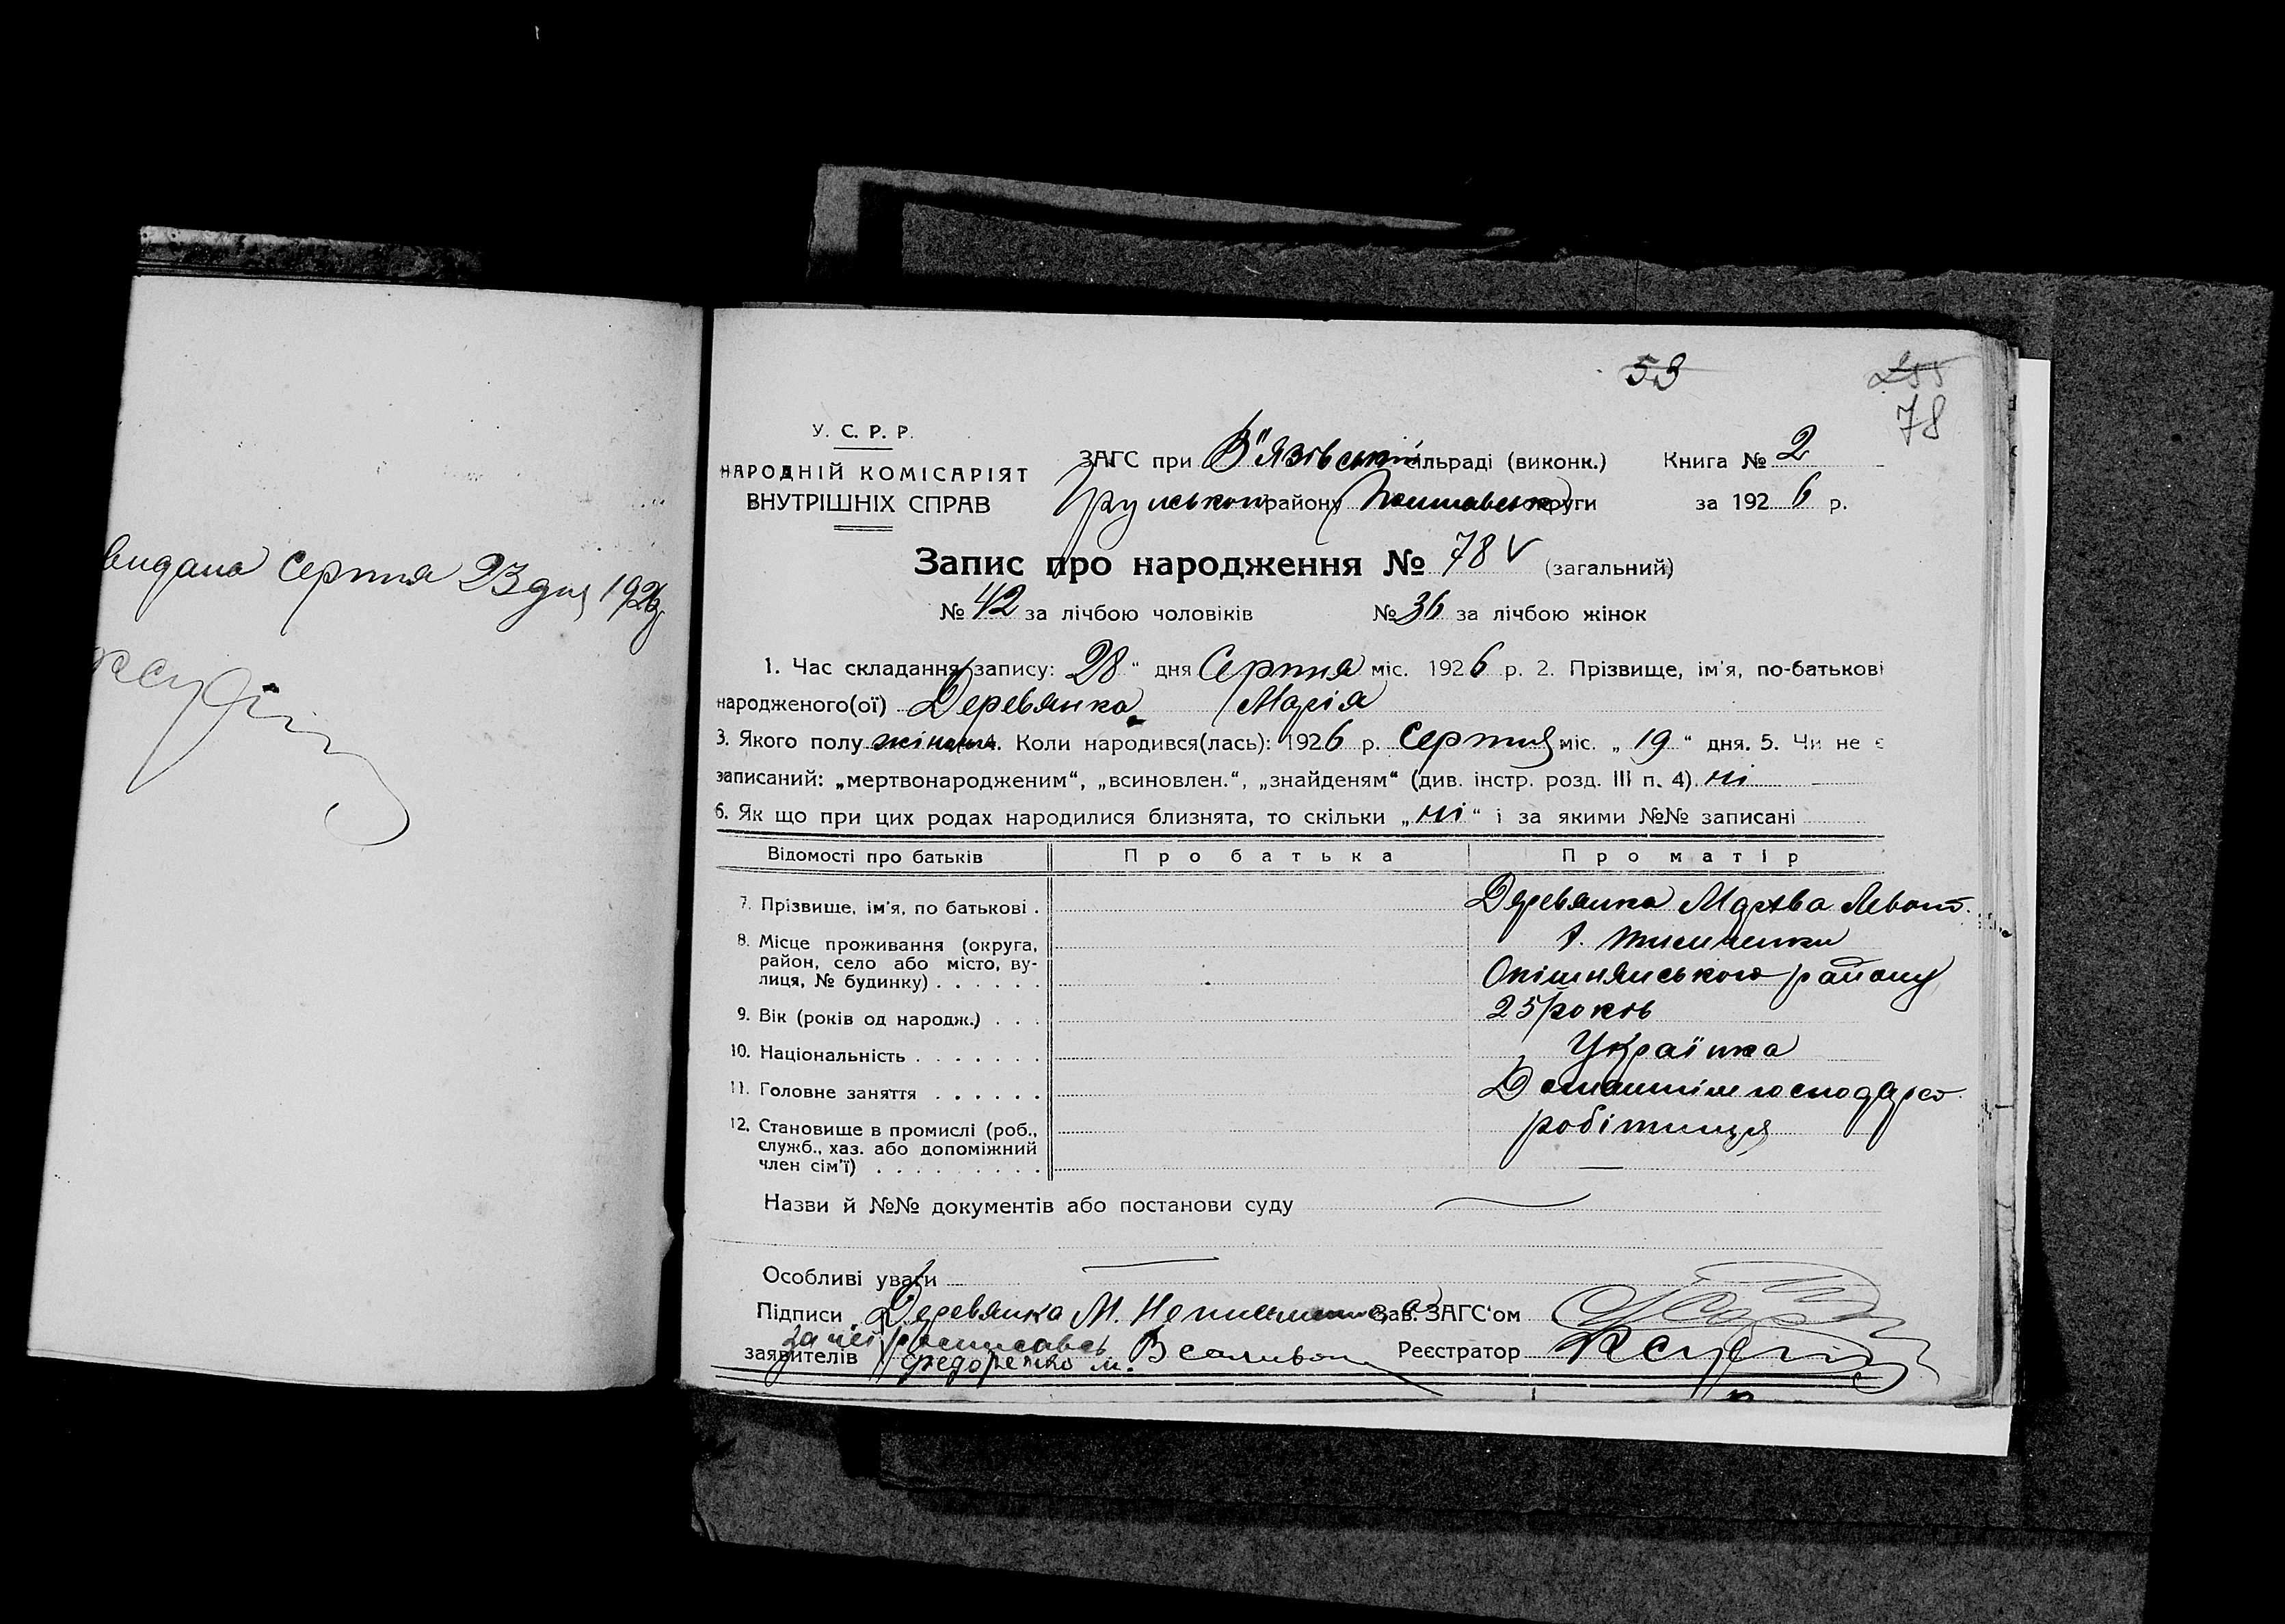 видана Серпня 23 дня 1926
53
255
78
У. С. Р. Р.
НАРОДНІЙ КОМІСАРІЯТ
ВНУТРІШНІХ СПРАВ
ЗАГС при В"язівській сільраді (виконк.) Книга № 2
Грунського району Полтавської округи за 1926 р.
Запис про народження № 78 V (загальний)
№ 42 за лічбою чоловіків № 36 за лічбою жінок
1. Час складання запису: 28 “ дня Серпня міс. 1926 р. 2. Прізвище, ім'я, по-батькові
народженого(ої) Деревянко Марія
3. Якого полу жіноч. Коли народився(лась): 1926 р. Серпня міс. „ 19 “ дня. 5. Чи не є
записаний: „мертвонародженим“, „всиновлен.“, „знайденям“ (див. інстр. розд. III п. 4). ні
6. Як що при цих родах народилися близнята, то скільки „ ні “ і за якими №№ записані
Відомості про батьків Про батька Про матір
7. Прізвище, ім'я, по батькові . Деревянка Марва Левонт.
8. Місце проживання (округа,
район, село або місто, ву-
лиця, № будинку) . . . . . .
Опішнянського району
9. Вік (років од народж.) . . . 25 років
10. Національність . . . . . . . Українка
11. Головне заняття . . . . . . Домашнім господарст.
12. Становище в промислі (роб.,
служб., хаз. або допоміжний
член сім'ї) . . . . . . . . .
робітниця
Назви й №№ документів або постанови суду
Особливі уваги
Підписи Деревянка М. Неписьменна, а Зав. ЗАГС'ом
за неї росписавсь
заявителів Федоренко М. Реєстратор